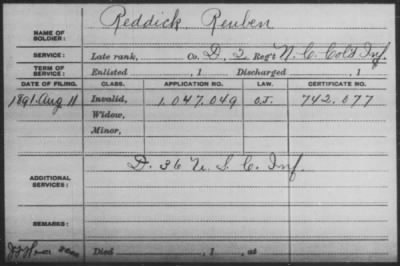 NAME OF SOLDIER: Reddick Reuben
SERVICE: Late rank, Co. D. 2, Reg't N. C. Cold Inf.
TERM OF SERVICE: Enlisted , 1 Discharged , 1
DATE OF FILING. CLASS. APPLICATION NO. LAW. CERTIFICATE NO.
1891 Aug 11 Invalid, 1.047.049 O.J. 742.077
Widow,
Minor,
ADDITIONAL SERVICES: D. 36 U. S. C. Inf.
REMARKS:
Died , 1 , at